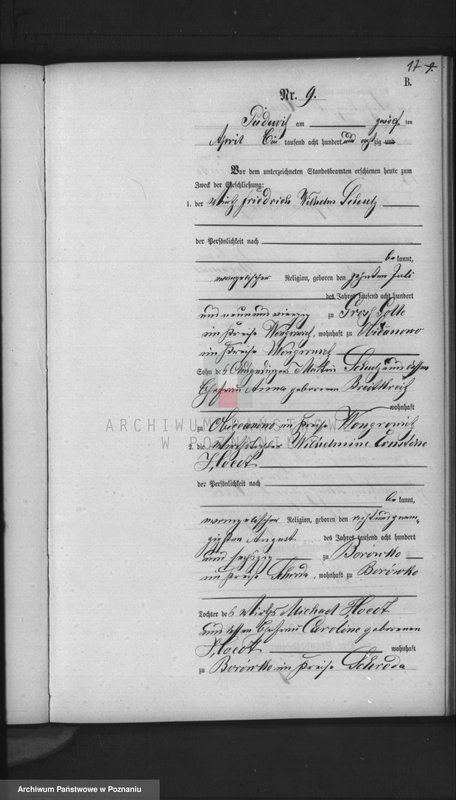 17 9.
B.
Nr. 9.
Pudewitz am zwölften
April Ein tausend acht hundert und achtzig und
Vor dem unterzeichneten Standesbeamten erschienen heute zum
Zweck der Eheschließung:
1. der Wirth Friedrich Wilhelm
der Persönlichkeit nach
be kannt,
evangelischer Religion, geboren den zehnten Juli
des Jahres tausend acht hundert
und neun und vierzig zu Groß Golle
im Kreise Wongrowitz, wohnhaft zu
im Kreise Wongrowitz
Sohn des Martin und dessen
Ehefrau Anna geborenen Breitkreitz
wohnhaft
zu im Kreise Wongrowitz
2. die Wilhelmine Ernstine
der Persönlichkeit nach
be kannt,
evangelischer Religion, geboren den
zigsten August des Jahres tausend acht hundert
und sechszig zu Borówko
im Kreise Schroda, wohnhaft zu Borówko
Tochter des Wirths Michael
und dessen Ehefrau Caroline geborenen
wohnhaft
zu Borówko im Kreise Schroda
ARCHIWUM PAŃSTWOWE
W POZNANIU
Archiwum Państwowe w Poznaniu